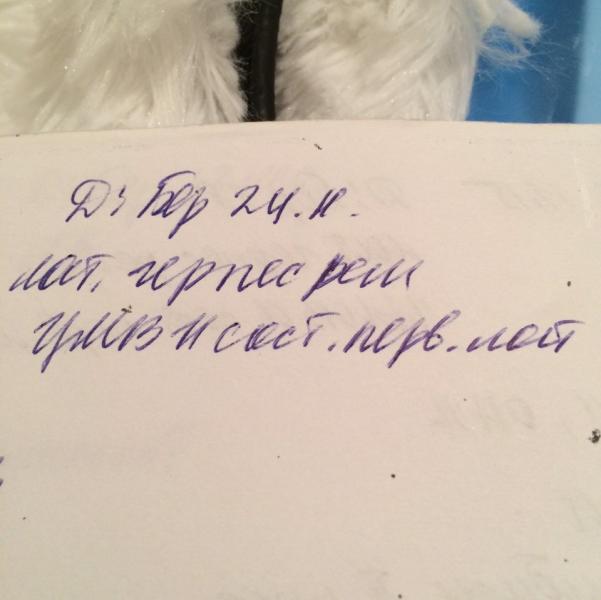 Д: Бер 24 н.
лат. герпес рец
ЦМВИ сост. перв. лат